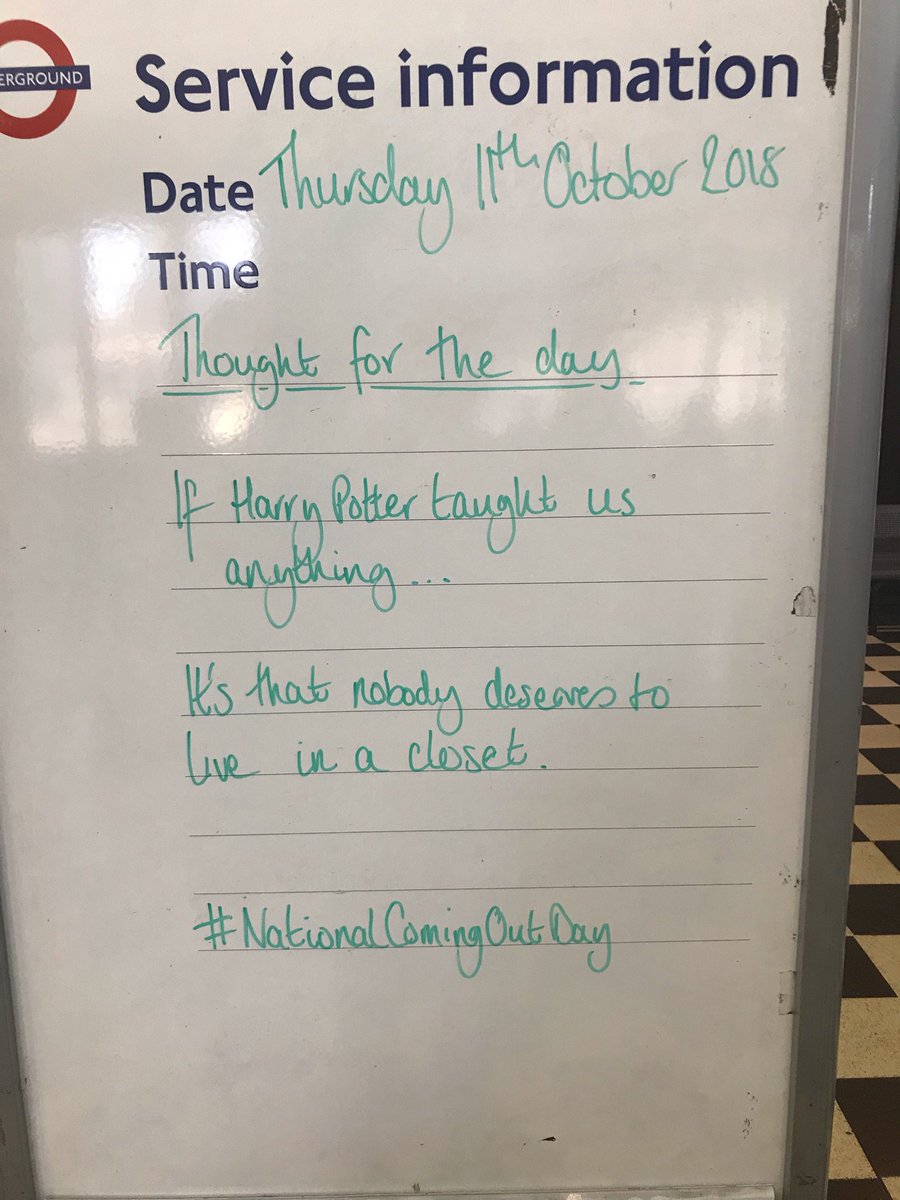 ERGROUND
Service information
Date Thursday 11th October 2018
Time
Thought for the day
If Harry Potter taught us
anything...
It's that nobody deserves to
live in a closet.
#NationalComingOutDay